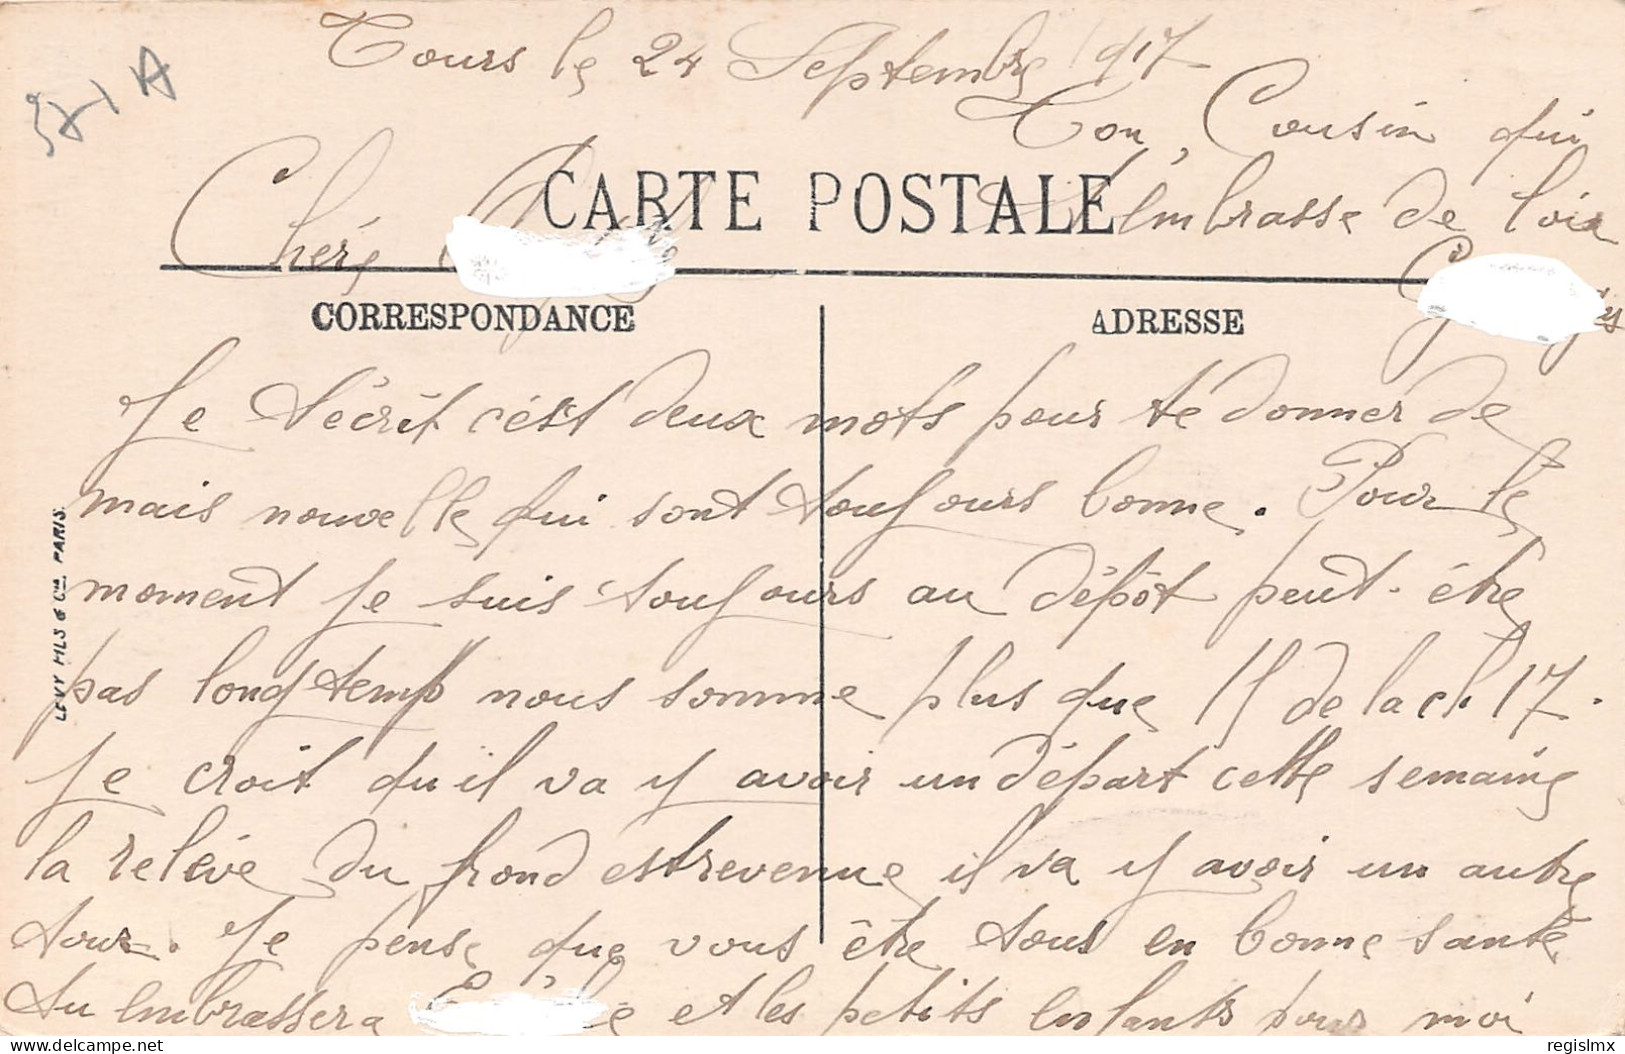 Tours le 24 Septembre 1917
571 A
CARTE POSTALE
Chère
CORRESPONDANCE
ADRESSE
Je técrit cést deux mots pour te donner de
mais nouvelle qui sont toujours bonne. Pour le
moment je suis toujours au dépôt peut-être
pas longtemp nous somme plus que 15 de la cl. 17.
Je croit qu'il va y avoir un départ cette semaine
la relève du frond est revenue il va y avoir un autre
tour. Je pense que vous ête tous en bonne santé
tu embrassera et les petits enfants pour moi
Ton Cousin qui
t'embrasse de loin
LEVY FILS & Cie PARIS.
delcampe.net
regislmx